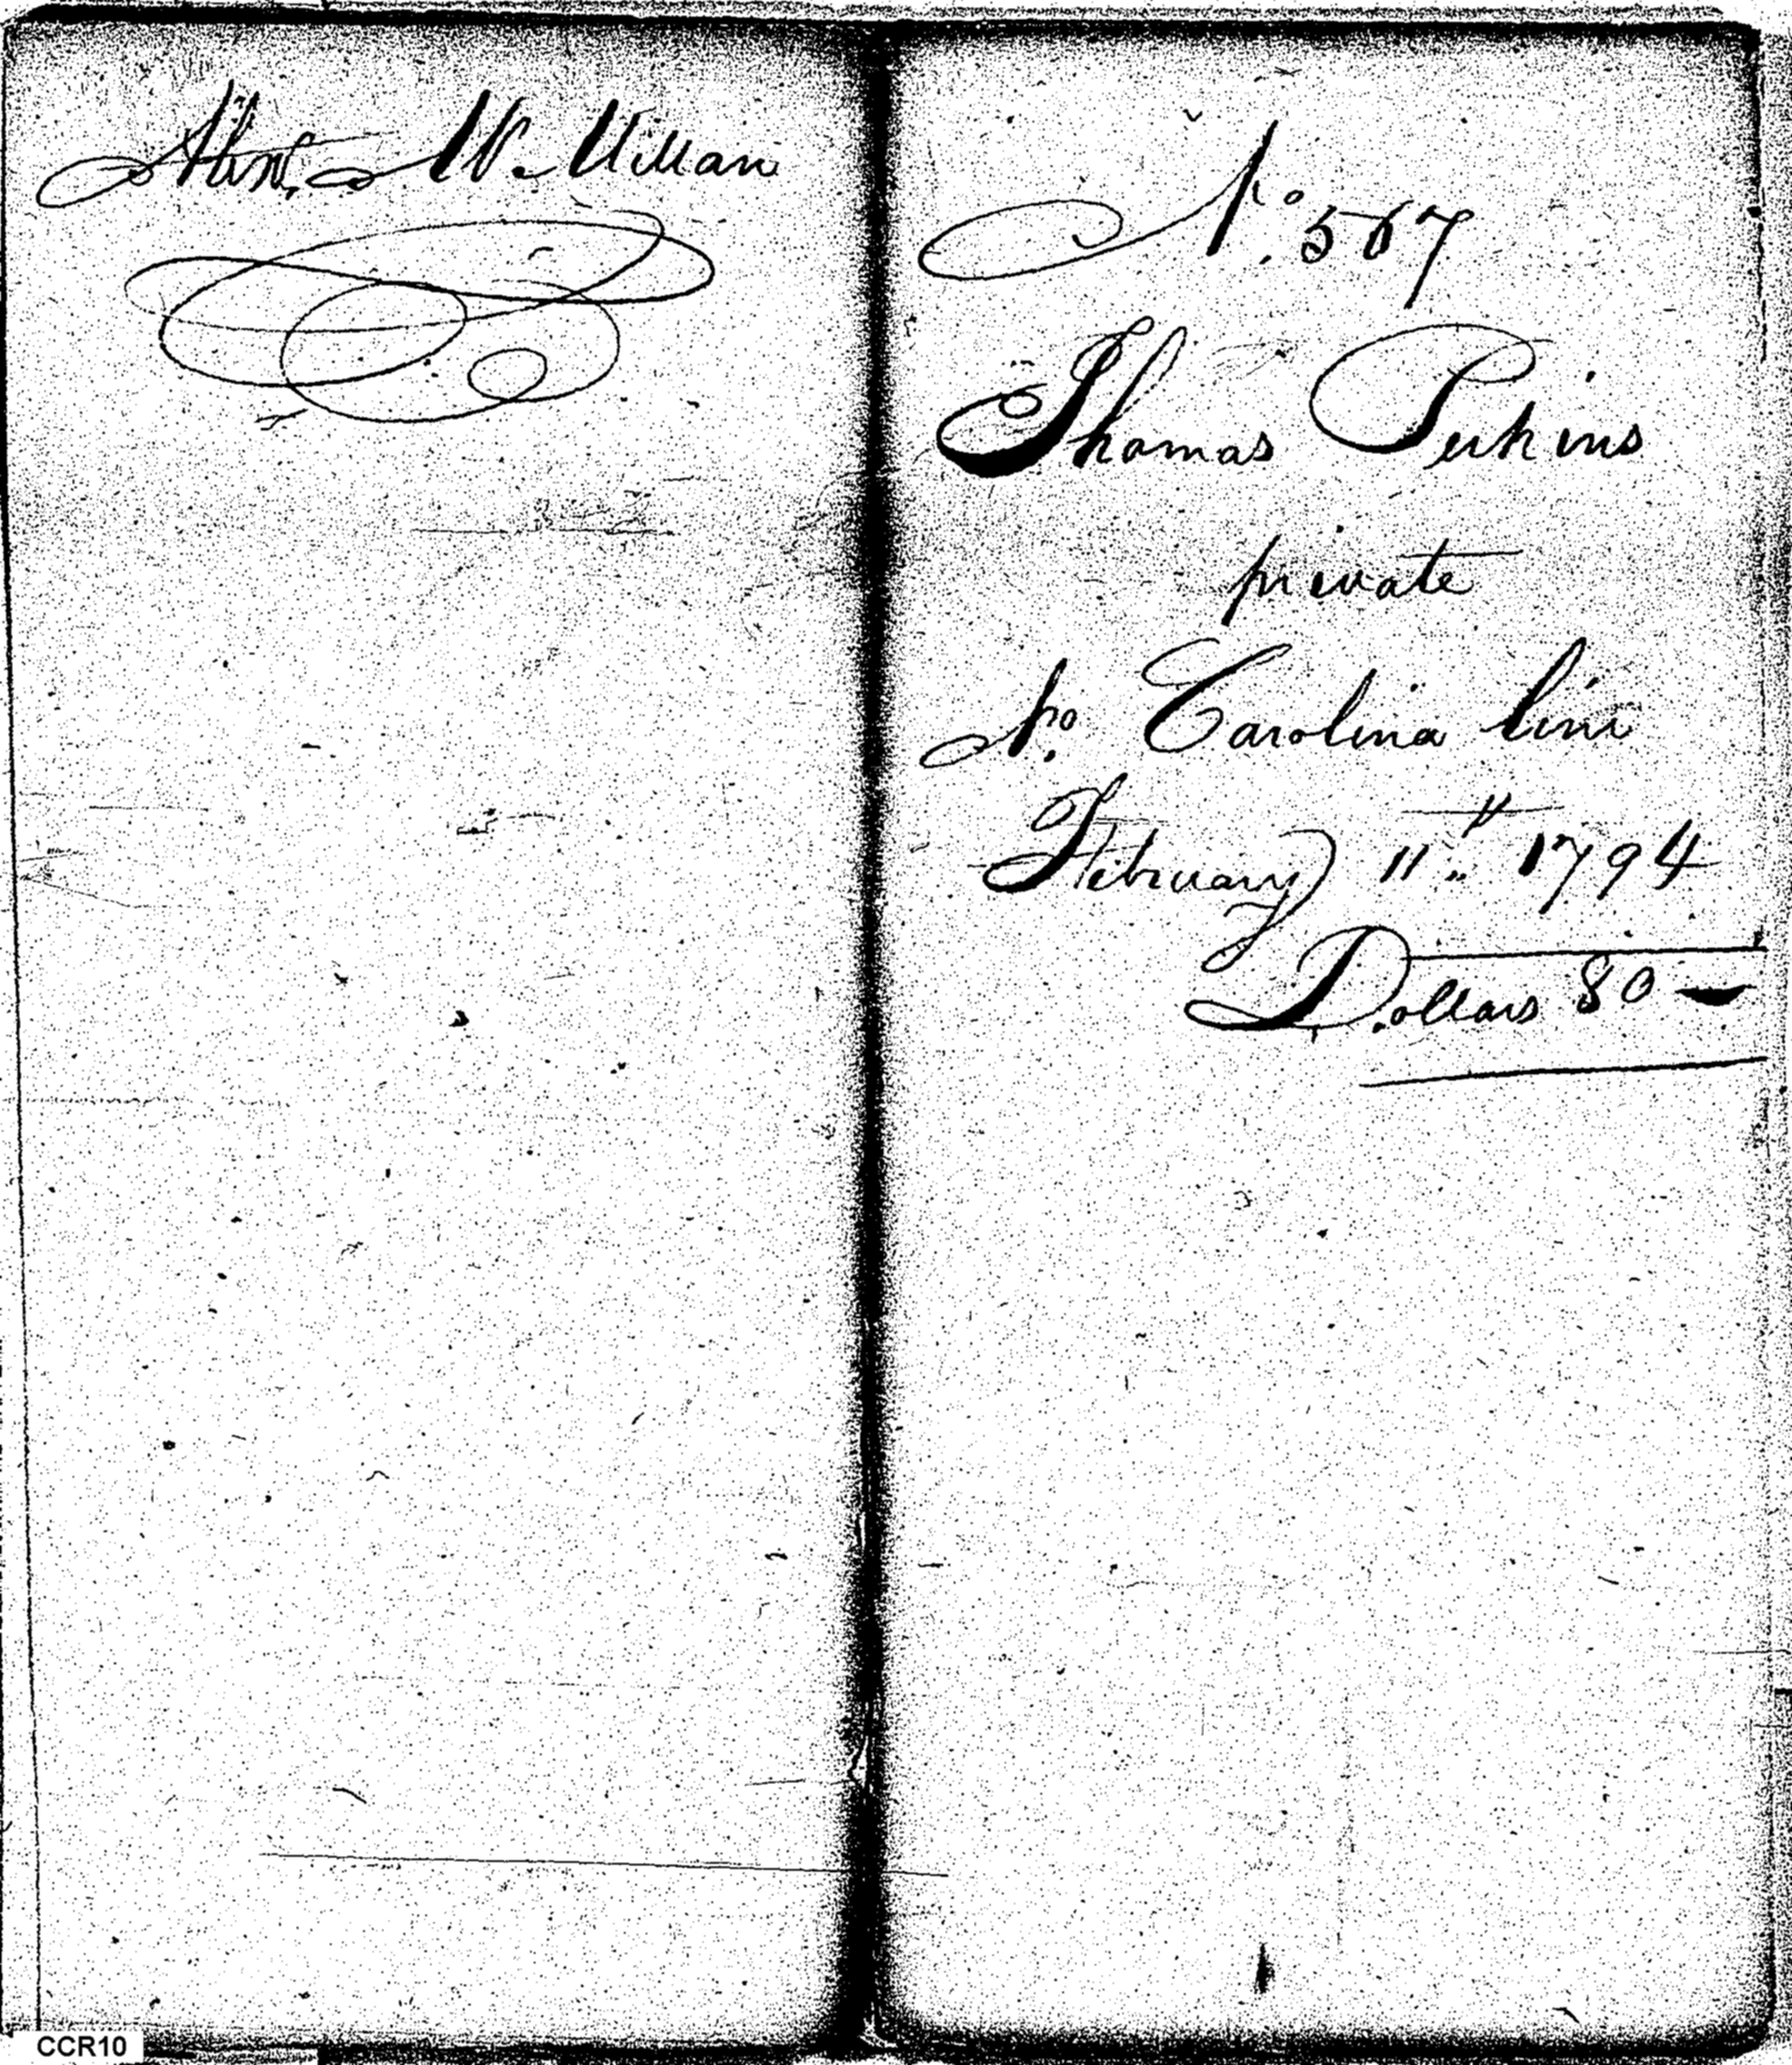 Alexr. McMillan
No. 567
Thomas Perkins
private
No. Carolina line
February 11th 1794
Dollars 80
CCR10